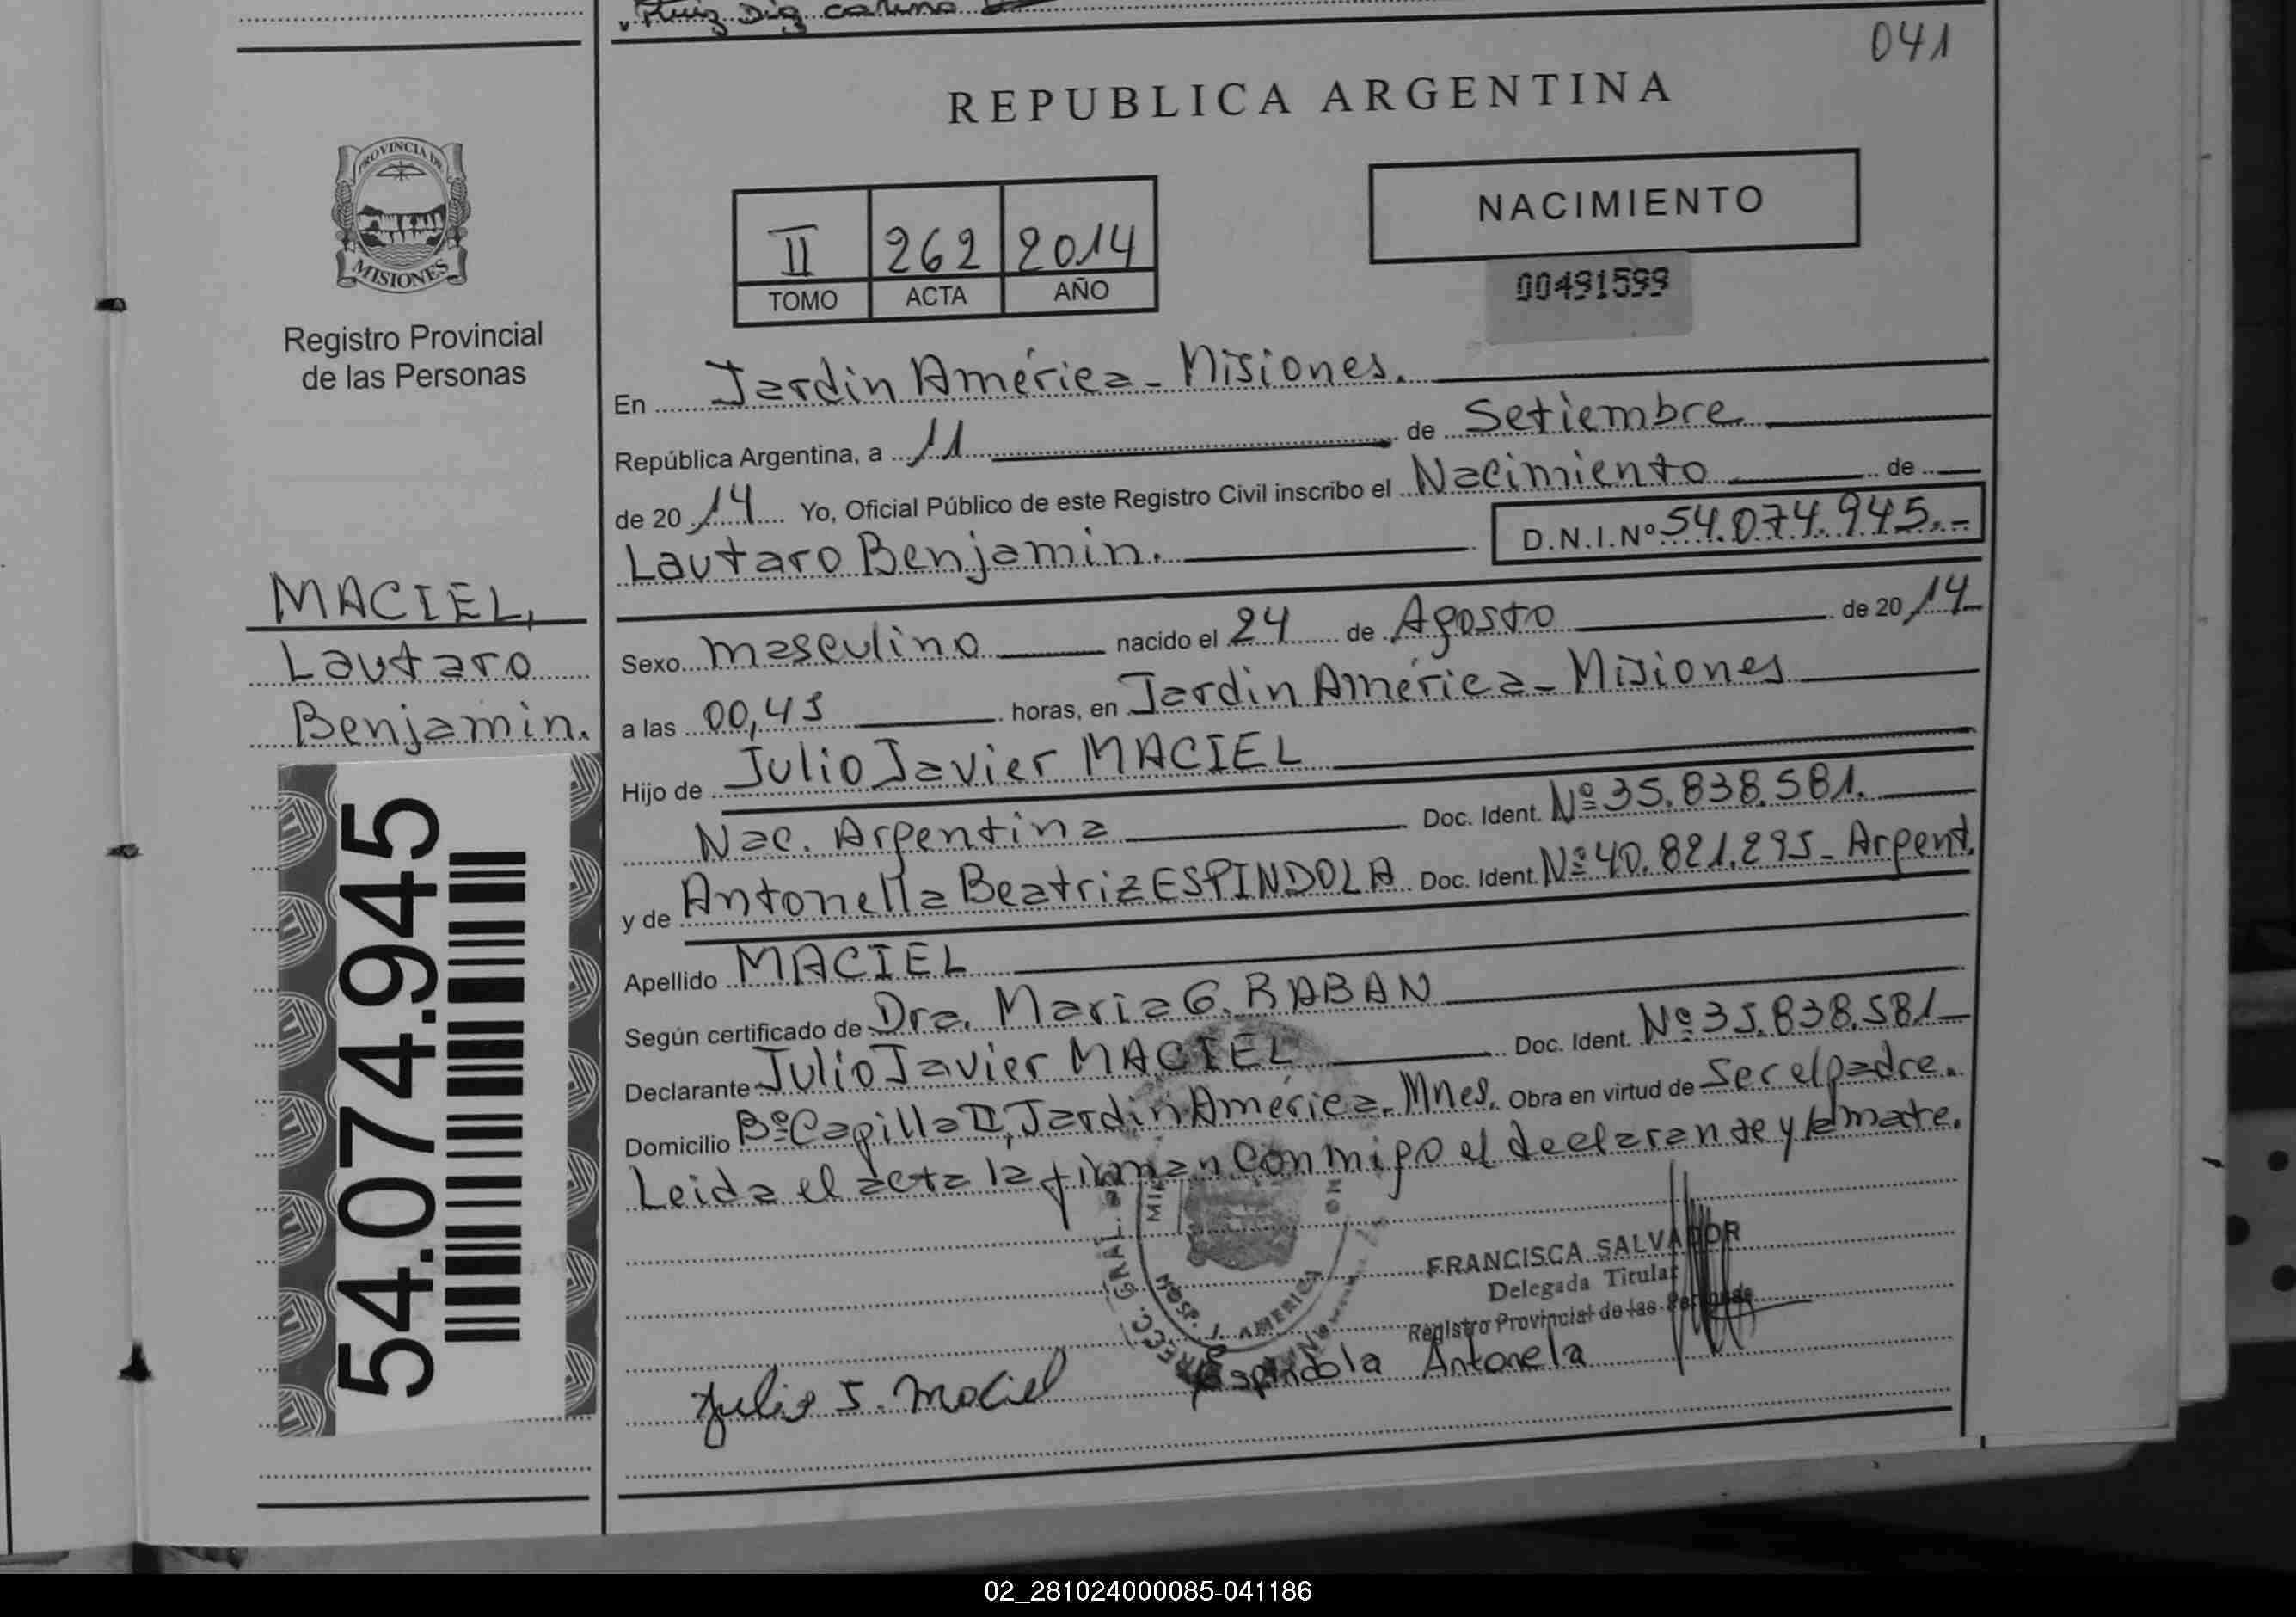 Ruiz Diaz
041
REPUBLICA ARGENTINA
PROVINCIA DE
MISIONES
Registro Provincial
de las Personas
MACIEL,
Lautaro
Benjamin.
54.074.945
II 262 2014
TOMO ACTA AÑO
NACIMIENTO
00491599
En Jardin América - Misiones.
República Argentina, a 11 de Setiembre
de 2014 Yo, Oficial Público de este Registro Civil inscribo el Nacimiento de
Lautaro Benjamin. D.N.I.Nº 54.074.945.-
Sexo masculino nacido el 24 de Agosto de 2014
a las 00,45 horas, en Jardin América - Misiones
Hijo de Julio Javier MACIEL
Nac. Argentina Doc. Ident. Nº 35.838.581.
y de Antonella Beatriz ESPINDOLA Doc. Ident. Nº 40.821.295 - Argent.
Apellido MACIEL
Según certificado de Dra. Maria G. RABAN
Declarante Julio Javier MACIEL Doc. Ident. Nº 35.838.581
Domicilio Bº Capilla II, Jardin América - Mnes. Obra en virtud de Ser el padre.
Leida el acta la firman conmigo el declarante y la mate.
HOSP. J. AMERICA
FRANCISCA SALVADOR
Delegada Titular
Registro Provincial de las Personas
Julio J. Maciel
Espindola Antonela
02_281024000085-041186